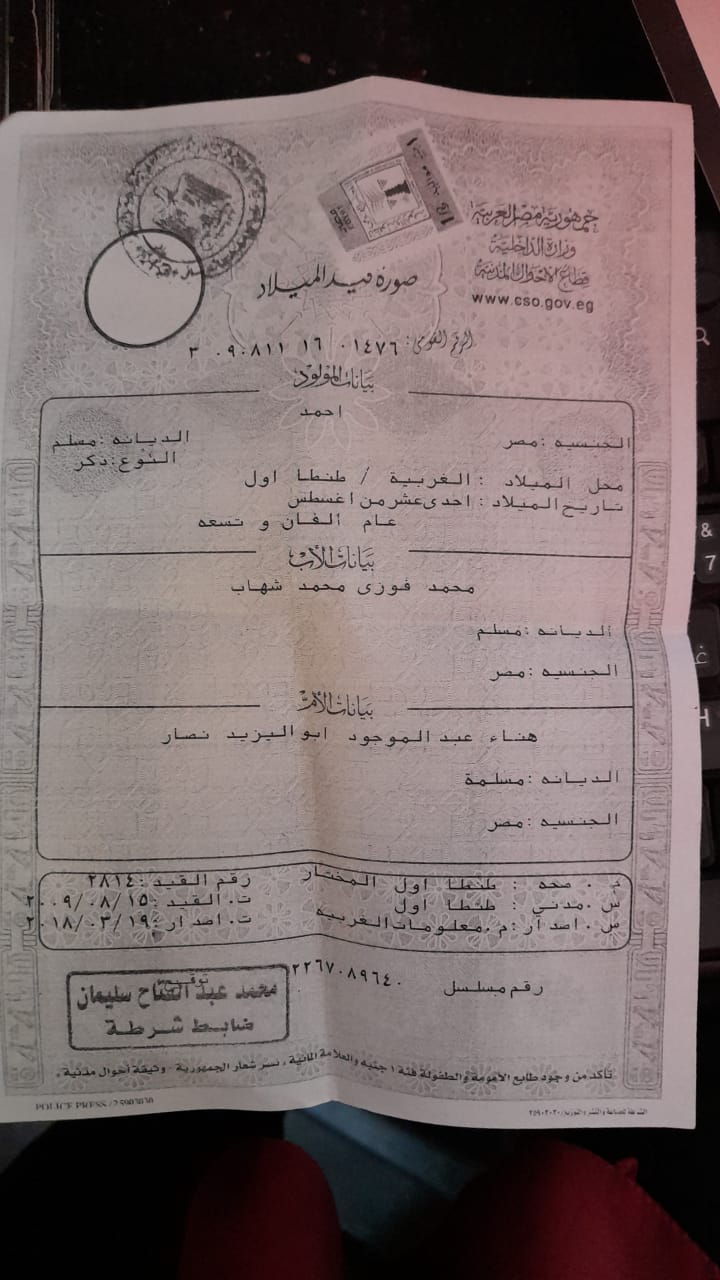 جمهورية مصر العربية
وزارة الداخلية
قطاع الأحوال المدنية
www.cso.gov.eg
صورة قيد الميلاد
الرقم القومى: ٣ ٠٩٠٨١١ ١٦ ٠١٤٧٦
بيانات المولود
احمد
الجنسيه :مصر الديانه :مسلم
النوع :ذكر
محل الميلاد : الغربية / طنطا اول
تاريخ الميلاد : احدى عشر من اغسطس
عام الفان و تسعه
بيانات الأب
محمد فوزى محمد شهاب
الديانه :مسلم
الجنسيه :مصر
بيانات الأم
هناء عبد الموجود ابو اليزيد نصار
الديانه :مسلمة
الجنسيه :مصر
م . صحه : طنطا اول المختار رقم القيد :٢٨١٤
س .مدني : طنطا اول ت. القيد :٢٠٠٩/٠٨/١٥
س . اصدار :م .معلومات الغربيه ت. اصدار :٢٠١٨/٠٣/١٩
رقم مسلسل ٢٢٦٧٠٨٩٦٤٠
توقيع
محمد عبد الفتاح سليمان
ضابط شرطة
تأكد من وجود طابع الأمومة والطفولة فئة ١ جنيه والعلامة المائية ، نسر شعار الجمهورية - وثيقة أحوال مدنية .
POLICE PRESS / 25903030